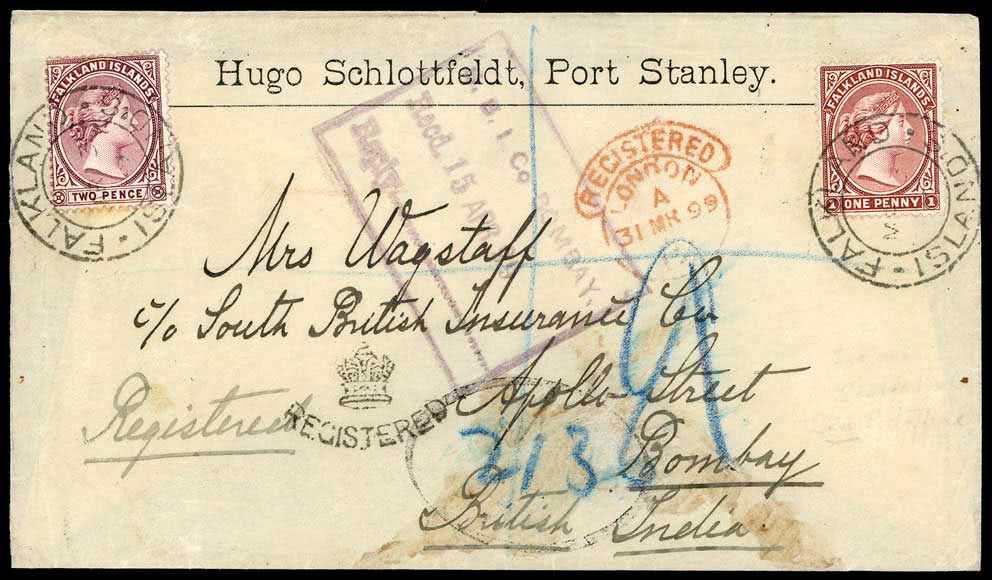 Hugo Schlottfeldt, Port Stanley.
FALKLAND ISLANDS
TWO PENCE
FALKLAND ISLANDS
1 ONE PENNY 1
FALKLAND ISLANDS
FALKLAND ISLANDS
B. I. Co
BOMBAY.
Recd. 15 AP
REGISTERED
LONDON
A
31 MR 99
Mrs Wagstaff
c/o South British Insurance Co
Apollo Street
Bombay
British India
Registered
REGISTERED
213